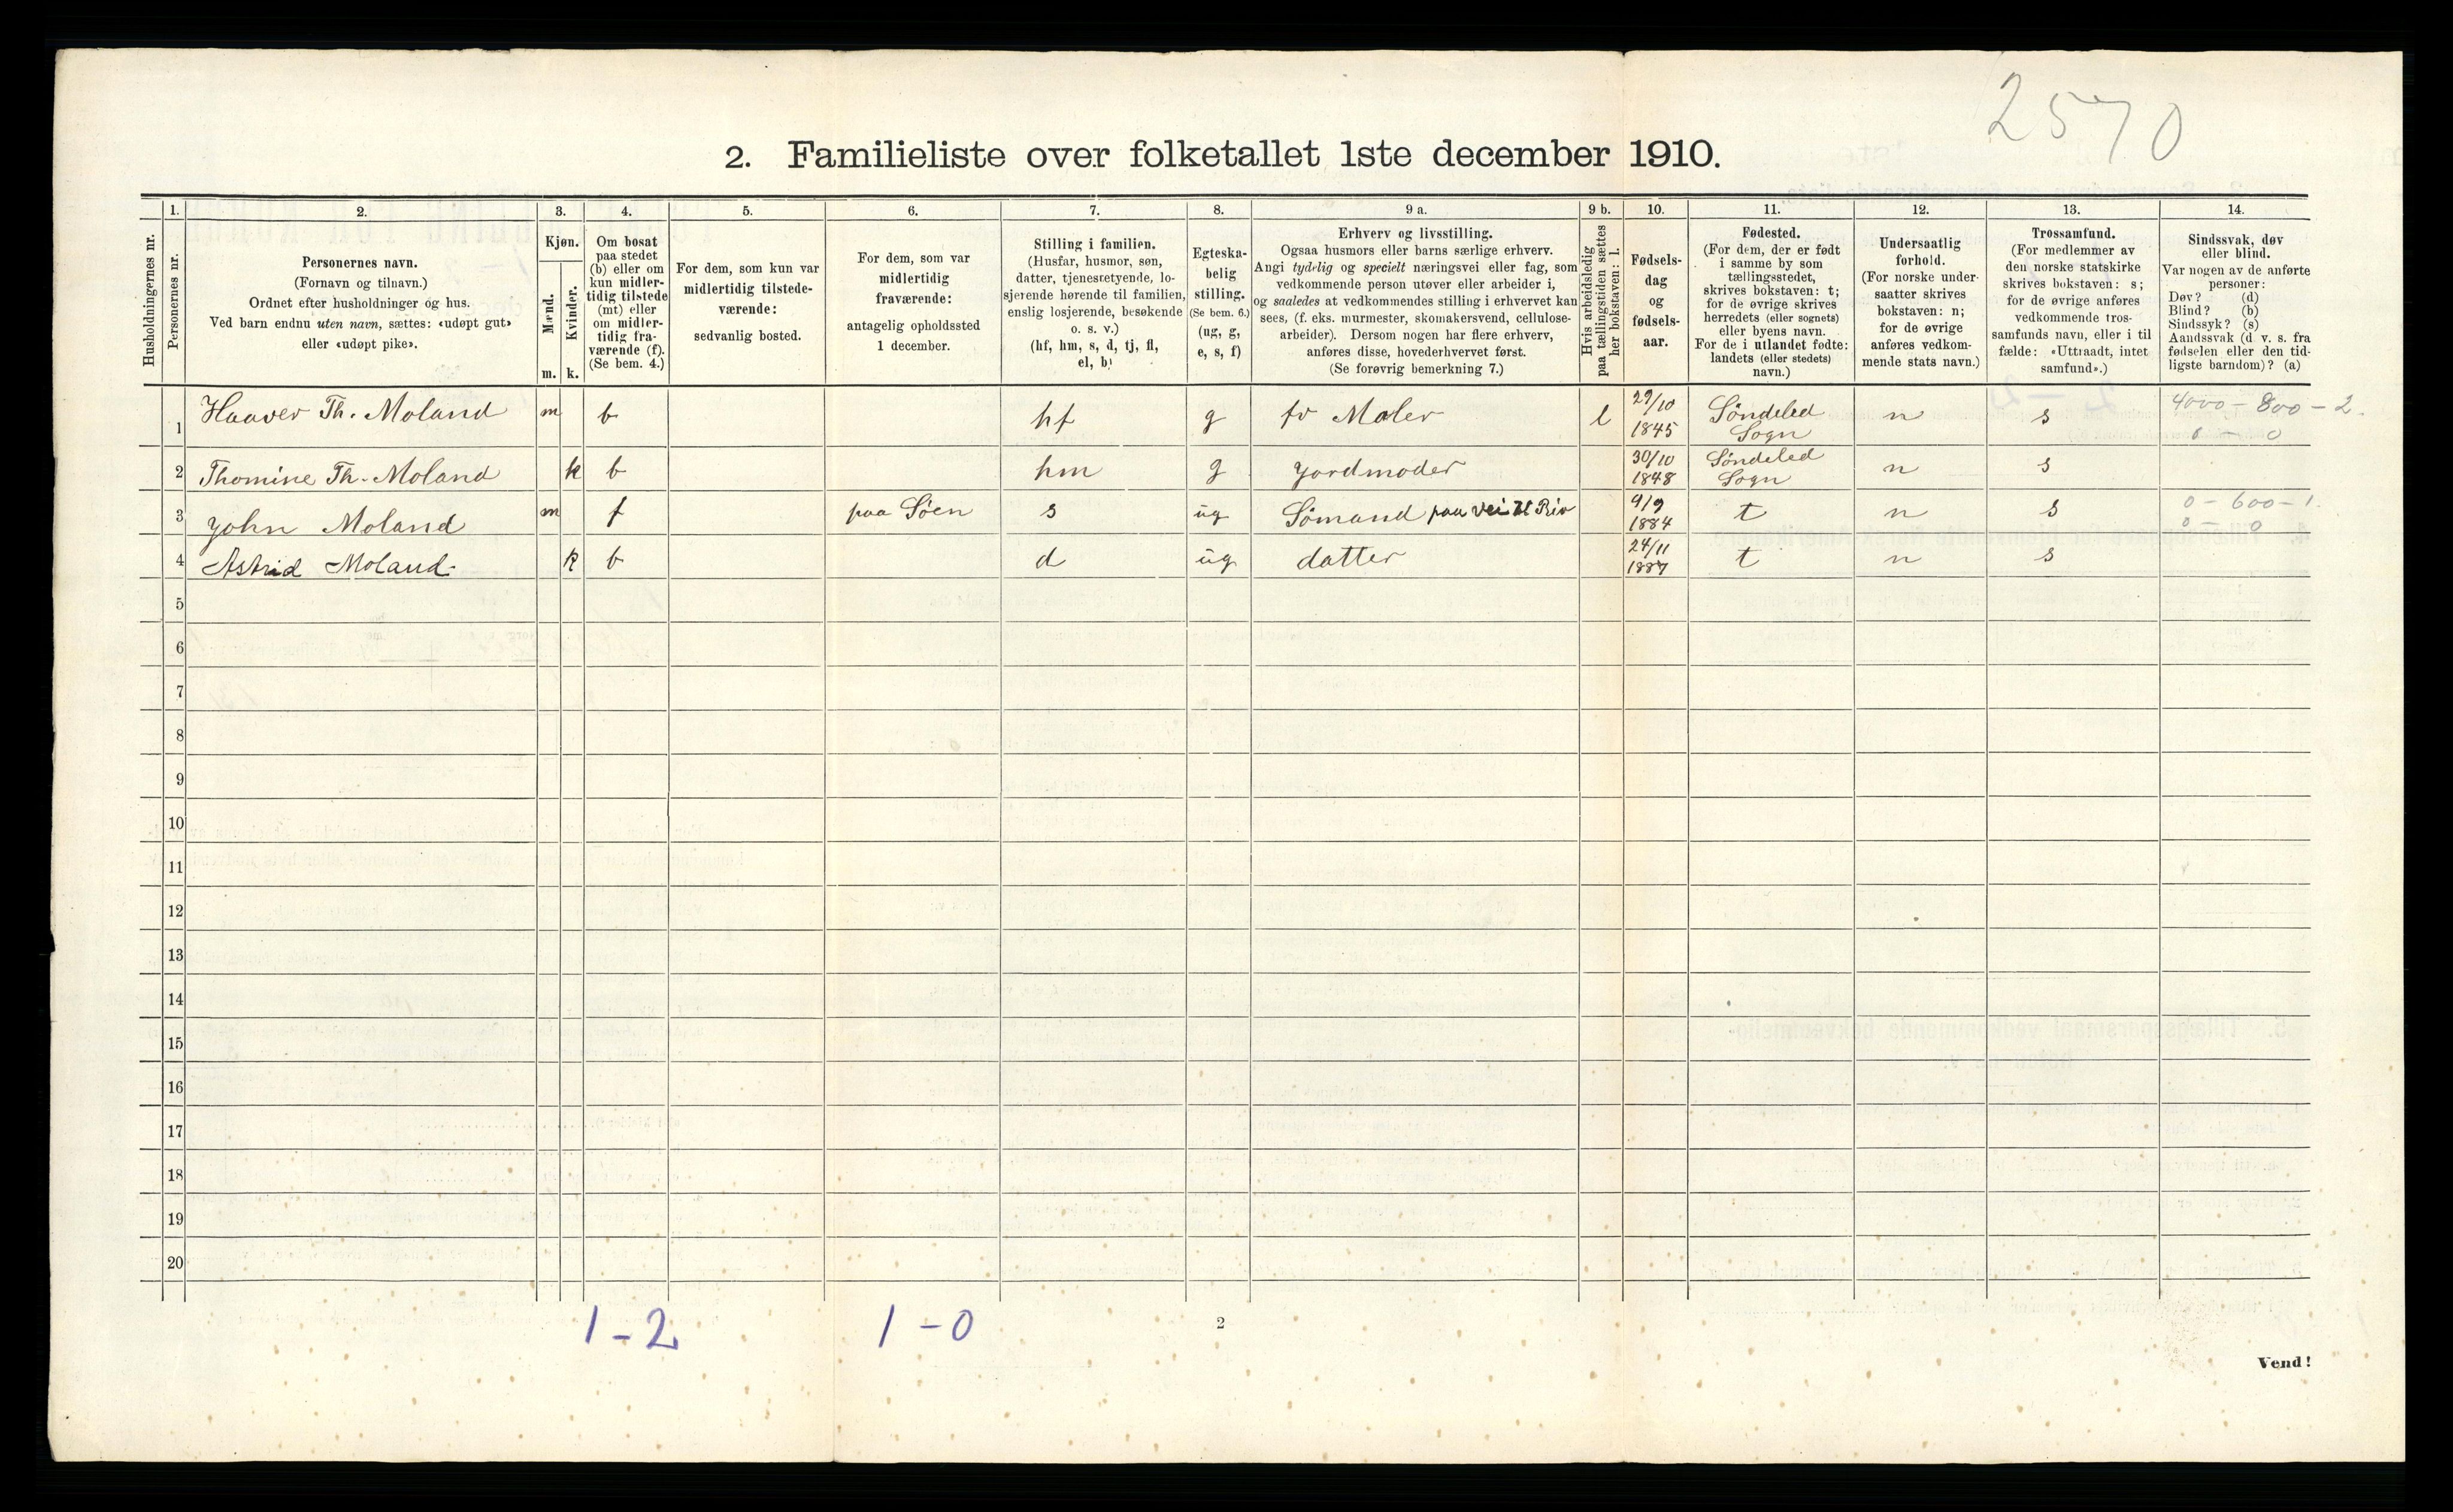 2570
2. Familieliste over folketallet 1ste december 1910.
Husholdningernes nr.
1.
Personernes nr.
2.
Personernes navn.
(Fornavn og tilnavn.)
Ordnet efter husholdninger og hus.
Ved barn endnu uten navn, sættes: «udøpt gut»
eller «udøpt pike».
3.
Kjøn.
Mænd.
Kvinder.
m. k.
4.
Om bosat
paa stedet
(b) eller om
kun midler-
tidig tilstede
(mt) eller
om midler-
tidig fra-
værende (f).
(Se bem. 4.)
5.
For dem, som kun var
midlertidig tilstede-
værende:
sedvanlig bosted.
6.
For dem, som var
midlertidig
fraværende:
antagelig opholdssted
1 december.
7.
Stilling i familien.
(Husfar, husmor, søn,
datter, tjenestetyende, lo-
sjerende hørende til familien,
enslig losjerende, besøkende
o. s. v.)
(hf, hm, s, d, tj, fl,
el, b)
8.
Egteska-
belig
stilling.
(Se bem. 6.)
(ug, g,
e, s, f)
9 a.
Erhverv og livsstilling.
Ogsaa husmors eller barns særlige erhverv.
Angi tydelig og specielt næringsvei eller fag, som
vedkommende person utøver eller arbeider i,
og saaledes at vedkommendes stilling i erhvervet kan
sees, (f. eks. murmester, skomakersvend, cellulose-
arbeider). Dersom nogen har flere erhverv,
anføres disse, hovederhvervet først.
(Se forøvrig bemerkning 7.)
9 b.
Hvis arbeidsledig
paa tællingstiden sættes
her bokstaven: l.
10.
Fødsels-
dag
og
fødsels-
aar.
11.
Fødested.
(For dem, der er født
i samme by som
tællingsstedet,
skrives bokstaven: t;
for de øvrige skrives
herredets (eller sognets)
eller byens navn.
For de i utlandet fødte:
landets (eller stedets)
navn.)
12.
Undersaatlig
forhold.
(For norske under-
saatter skrives
bokstaven: n;
for de øvrige
anføres vedkom-
mende stats navn.)
13.
Trossamfund.
(For medlemmer av
den norske statskirke
skrives bokstaven: s;
for de øvrige anføres
vedkommende tros-
samfunds navn, eller i til
fælde: «Uttraadt, intet
samfund».)
14.
Sindssvak, døv
eller blind.
Var nogen av de anførte
personer:
Døv? (d)
Blind? (b)
Sindssyk? (s)
Aandssvak (d v. s. fra
fødselen eller den tid-
ligste barndom)? (a)
1 Haaver Th. Moland m b hf g fv Maler l 29/10 1845 Söndeled Sogn n s 4000 - 800 - 2. 0 - 0
2 Thomine Th. Moland k b hm g Jordmoder 30/10 1848 Söndeled Sogn n s
3 John Moland m f paa Söen s ug Sömand paa vei til Rio 9/9 1884 t n s 0 - 600 - 1. 0 - 0
4 Astrid Moland k b d ug datter 24/11 1887 t n s
5
6
7
8
9
10
11
12
13
14
15
16
17
18
19
20
1 - 2 1 - 0
2
Vend!